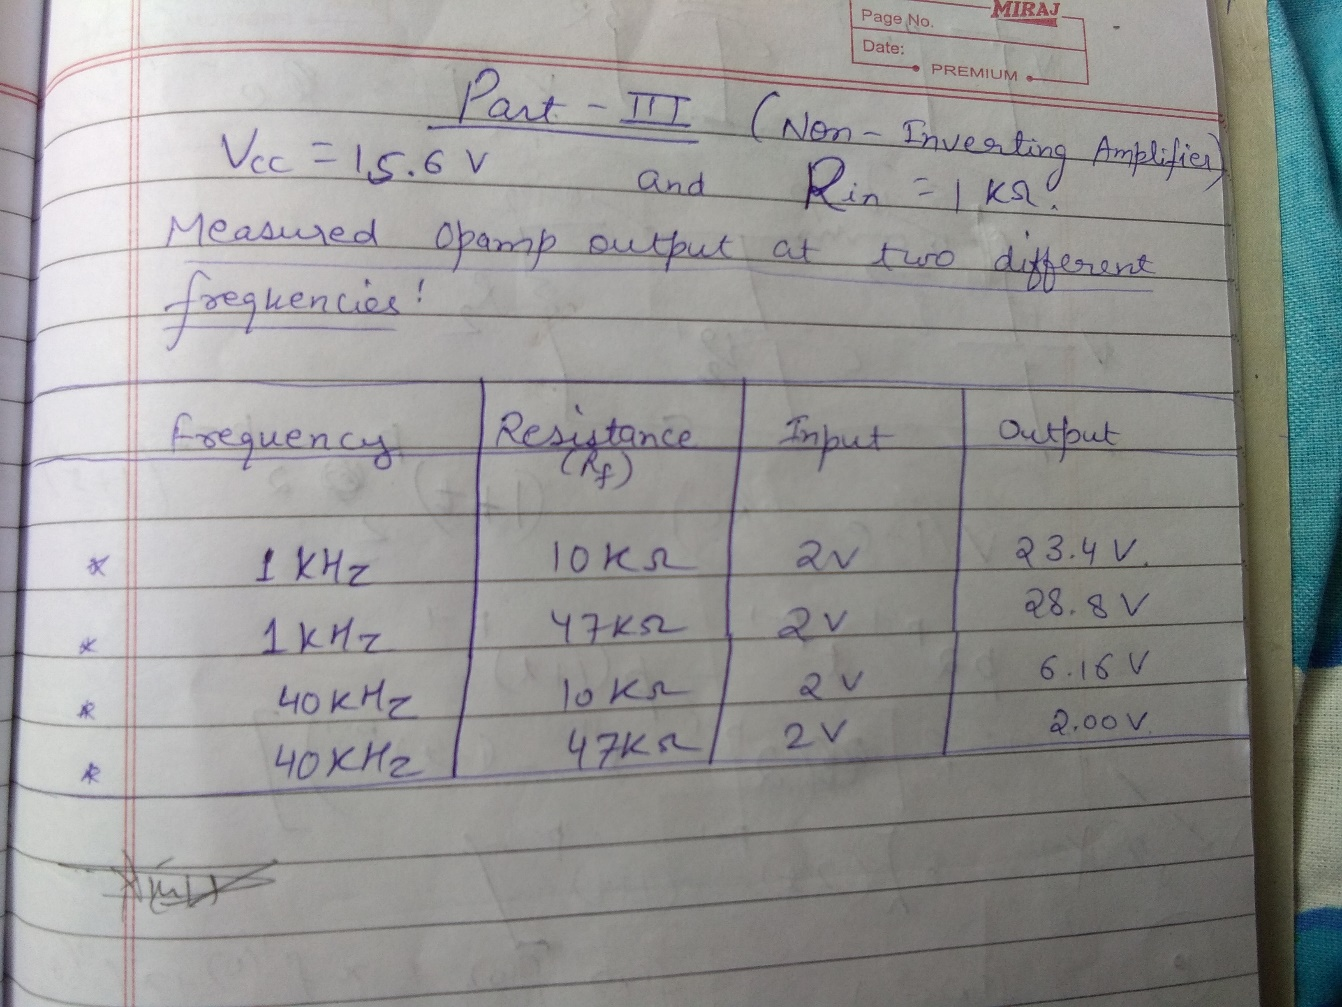 MIRAJ
Page No.
Date:
PREMIUM
Part - III (Non-Inverting Amplifier)
Vcc = 15.6 V and Rin = 1 KΩ.
Measured Opamp output at two different
frequencies:
frequency Resistance (Rf) Input Output
* 1 KHz 10KΩ 2V 23.4 V.
* 1 KHz 47KΩ 2V 28.8 V
* 40KHz 10KΩ 2V 6.16 V
* 40KHz 47KΩ 2V 2.00 V.